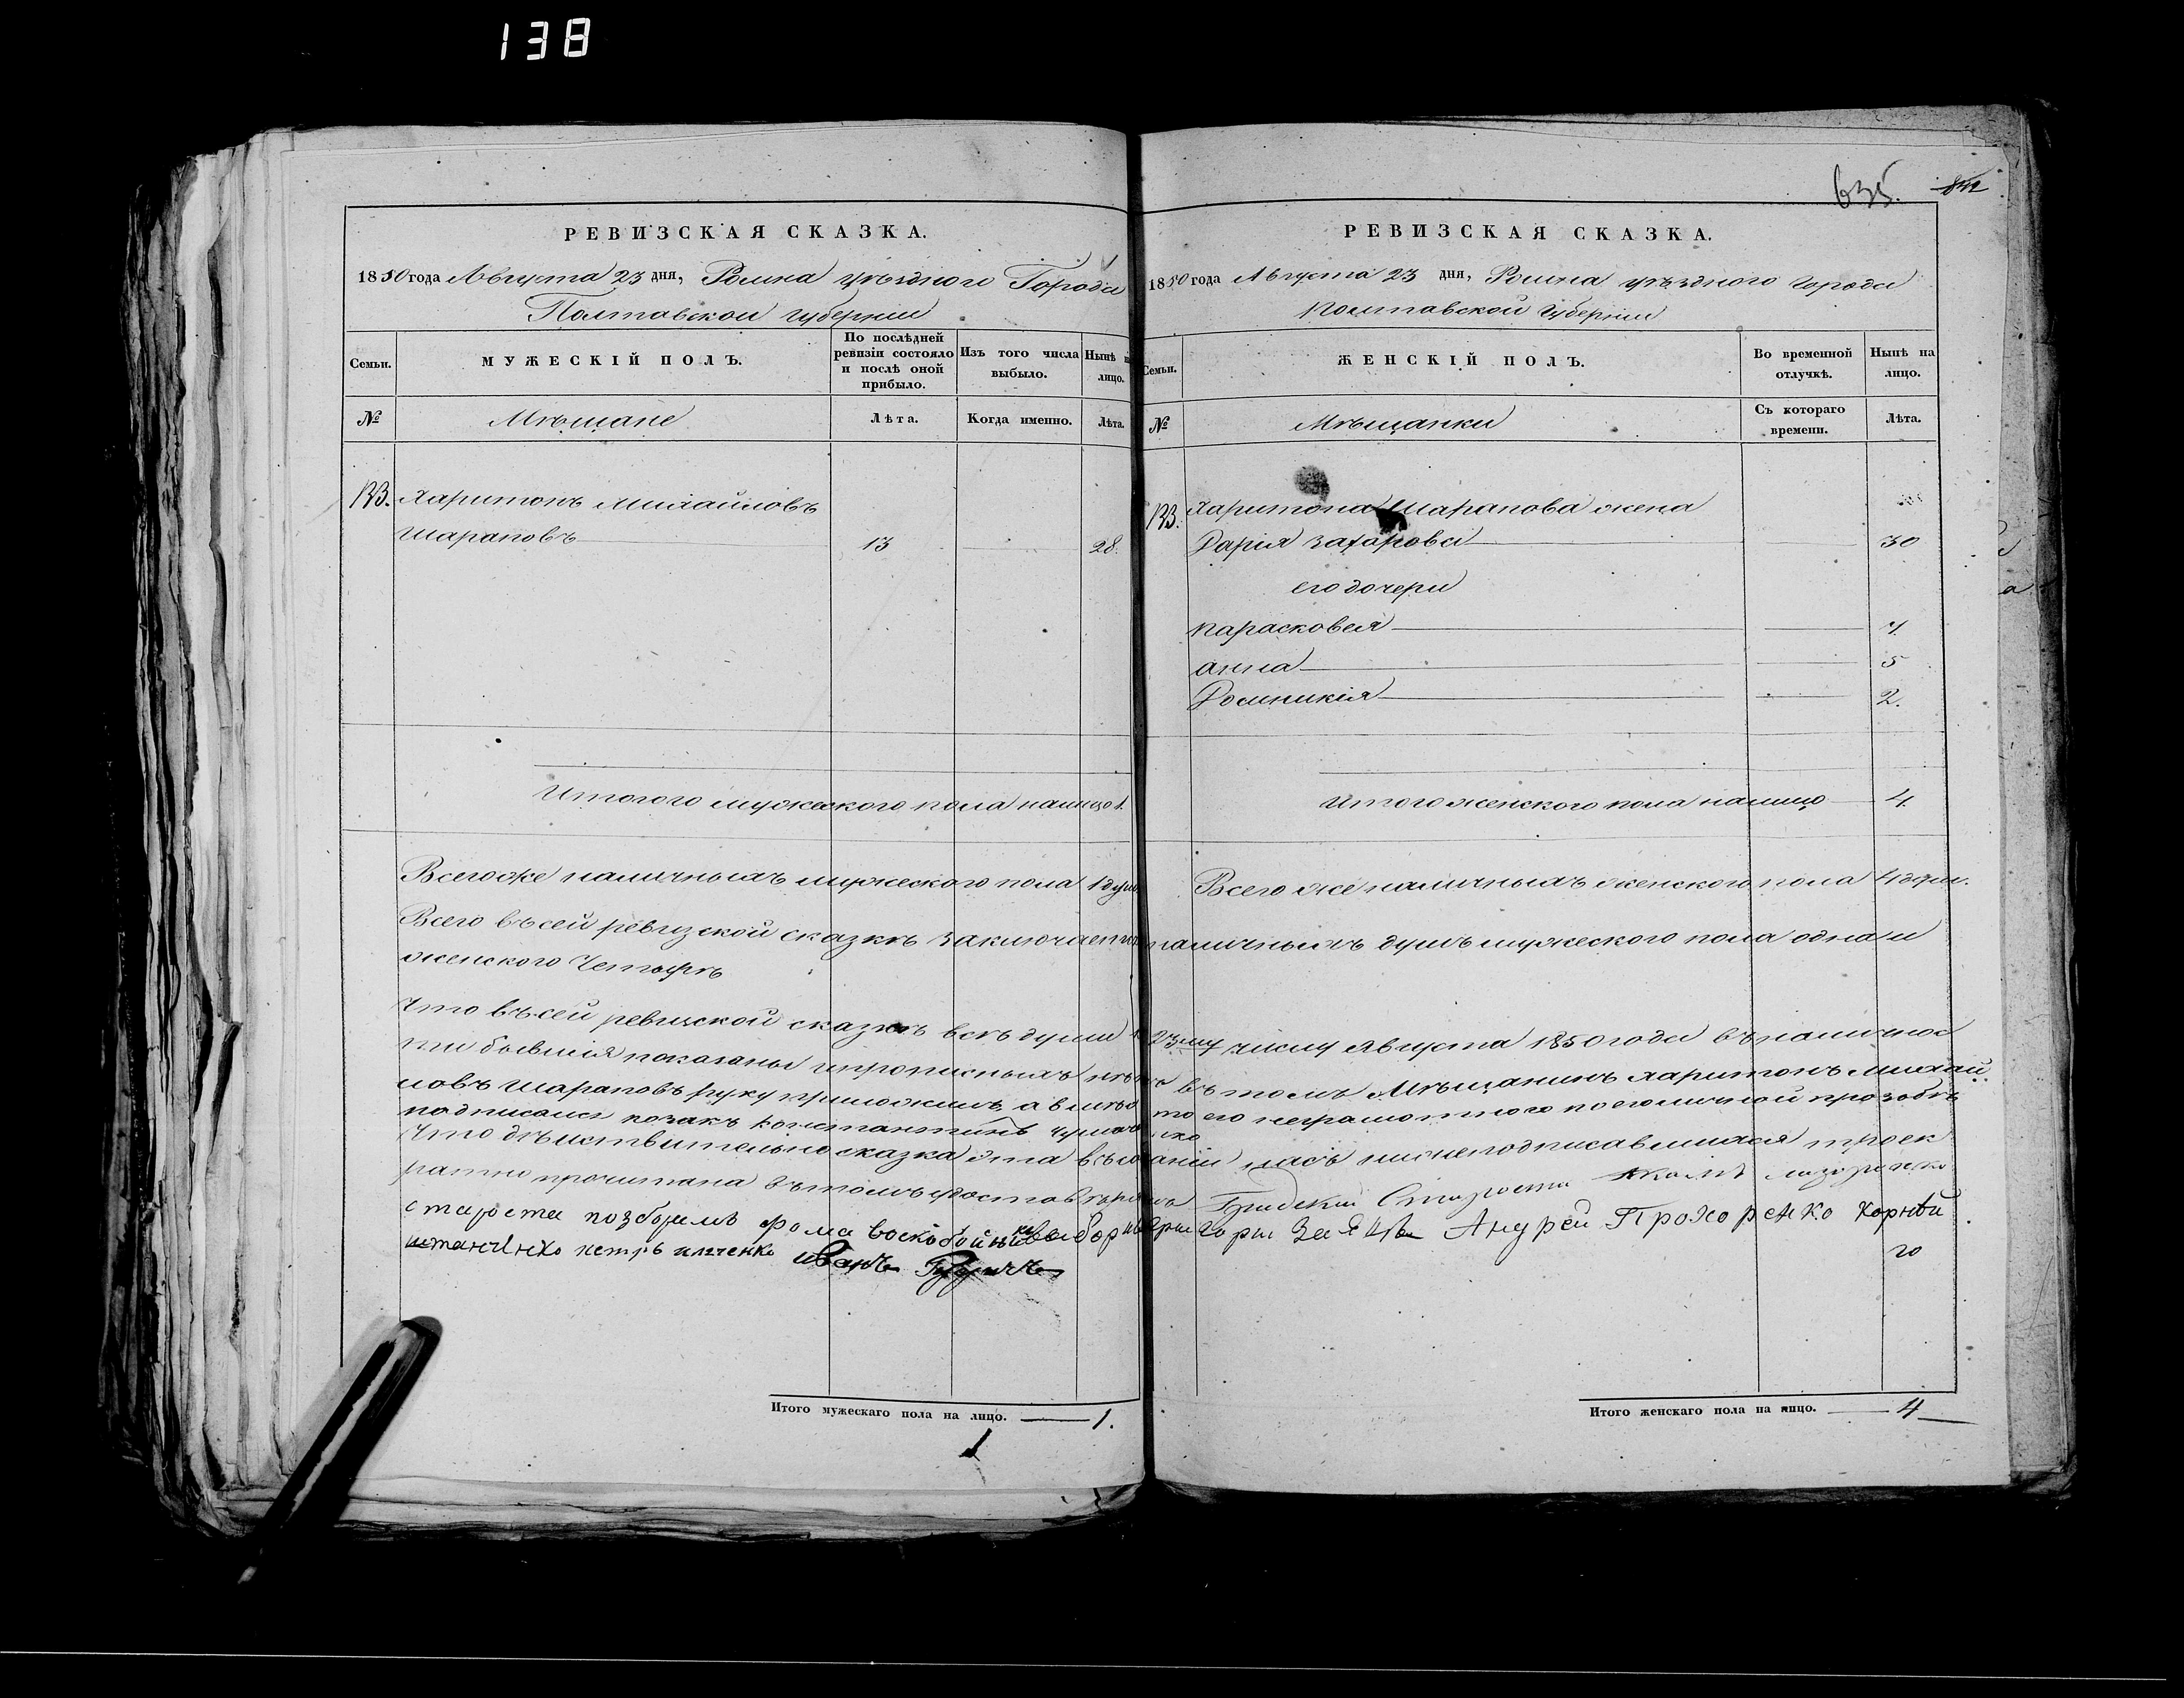 138
635.
РЕВИЗСКАЯ СКАЗКА.
1850 года Августа 23 дня, Ромна уѣзднаго Города
Полтавской губернии
Семьи.
МУЖЕСКІЙ ПОЛЪ.
По послѣдней ревизіи состояло и послѣ оной прибыло.
Изъ того числа выбыло.
Нынѣ на лицо.
№
Мѣщане
Лѣта.
Когда именно.
Лѣта.
133. Харитонъ Михайловъ
Шараповъ 13 28.
Итогого мужеского пола налицо 1.
Всегоже наличныхъ мужеского пола 1 душ
РЕВИЗСКАЯ СКАЗКА.
1850 года Августа 23 дня, Ромна уѣздного города
Полтавской губернии
Семьи.
ЖЕНСКІЙ ПОЛЪ.
Во временной отлучкѣ.
Нынѣ на лицо.
№
Мѣщанки
Съ котораго времени.
Лѣта.
133. Харитона Шарапова жена
Дарія Захарова 30
его дочери
Парасковея 7.
анна 5
Домникія 2.
Итого женского пола налицо 4.
Всего же наличныхъ женского пола 4 душ.
Всего въ сей ревизской сказкѣ заключается наличныхъ душъ мужеского пола одна и
женского Четырѣ
Что въ сей ревизской сказкѣ всѣ души к 23му числу Августа 1850 года въ налично
сти бывшія показаны и прописныхъ нѣтъ въ томъ Мѣщанинъ Харитонъ Михай
ловъ Шараповъ руку приложилъ, а вмѣсто его неграмотного по его личной прозбѣ
подписался козакъ Константинъ
Что дѣйствительно сказка эта въ слушаніи насъ нижеподписавшихся троек
ратно прочитана въ томъ удостовѣряемъ Градский Староста
староста по зборамъ Фома Воскобойников выборны Григори Заяцъ Андрей Прохоренко Корнѣй
петръ Иванъ
Итого мужескаго пола на лицо. 1.
1
Итого женскаго пола на лицо. 4